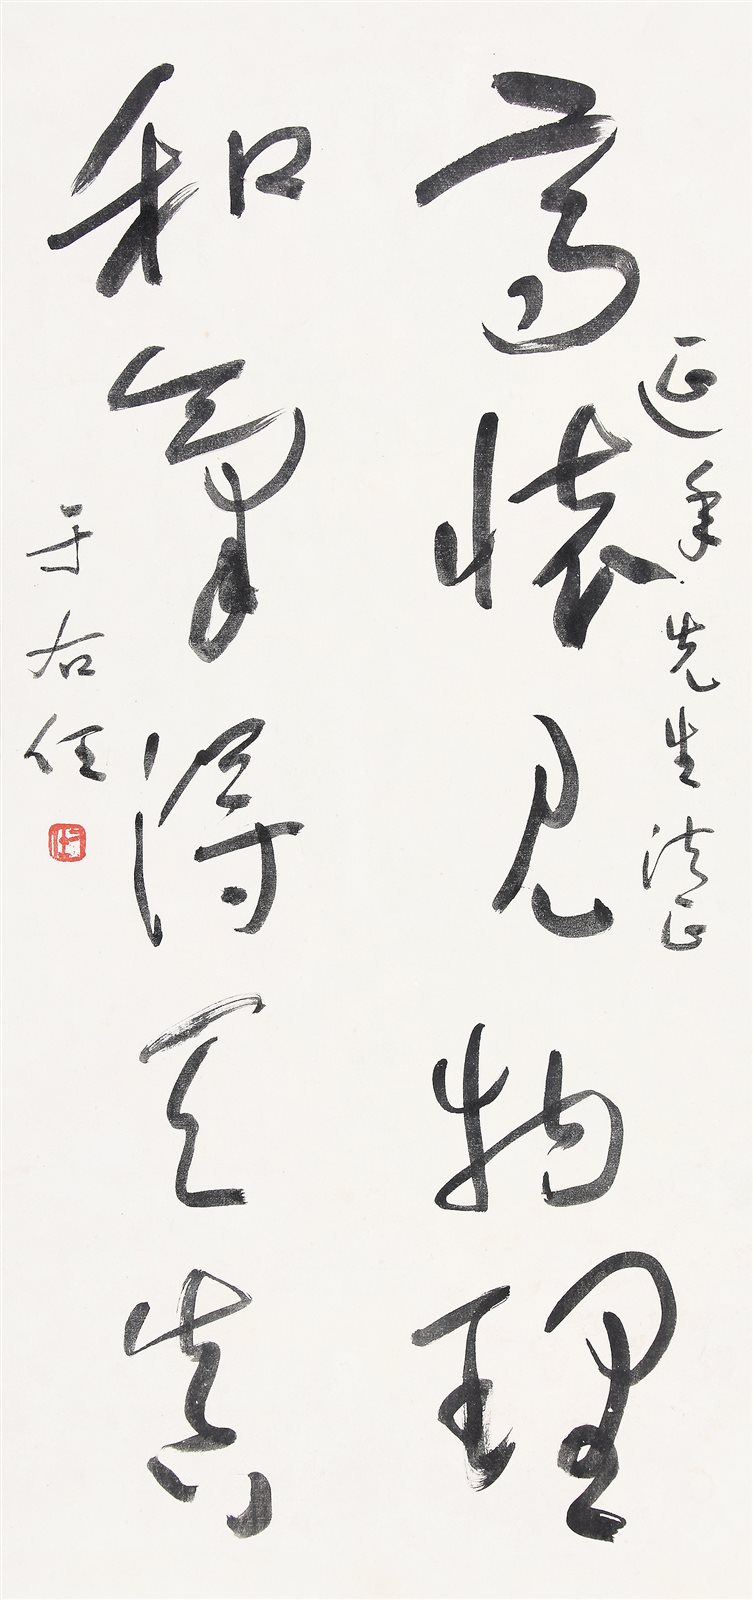 延年先生法正
高懷見物理
和氣得天真
于右任